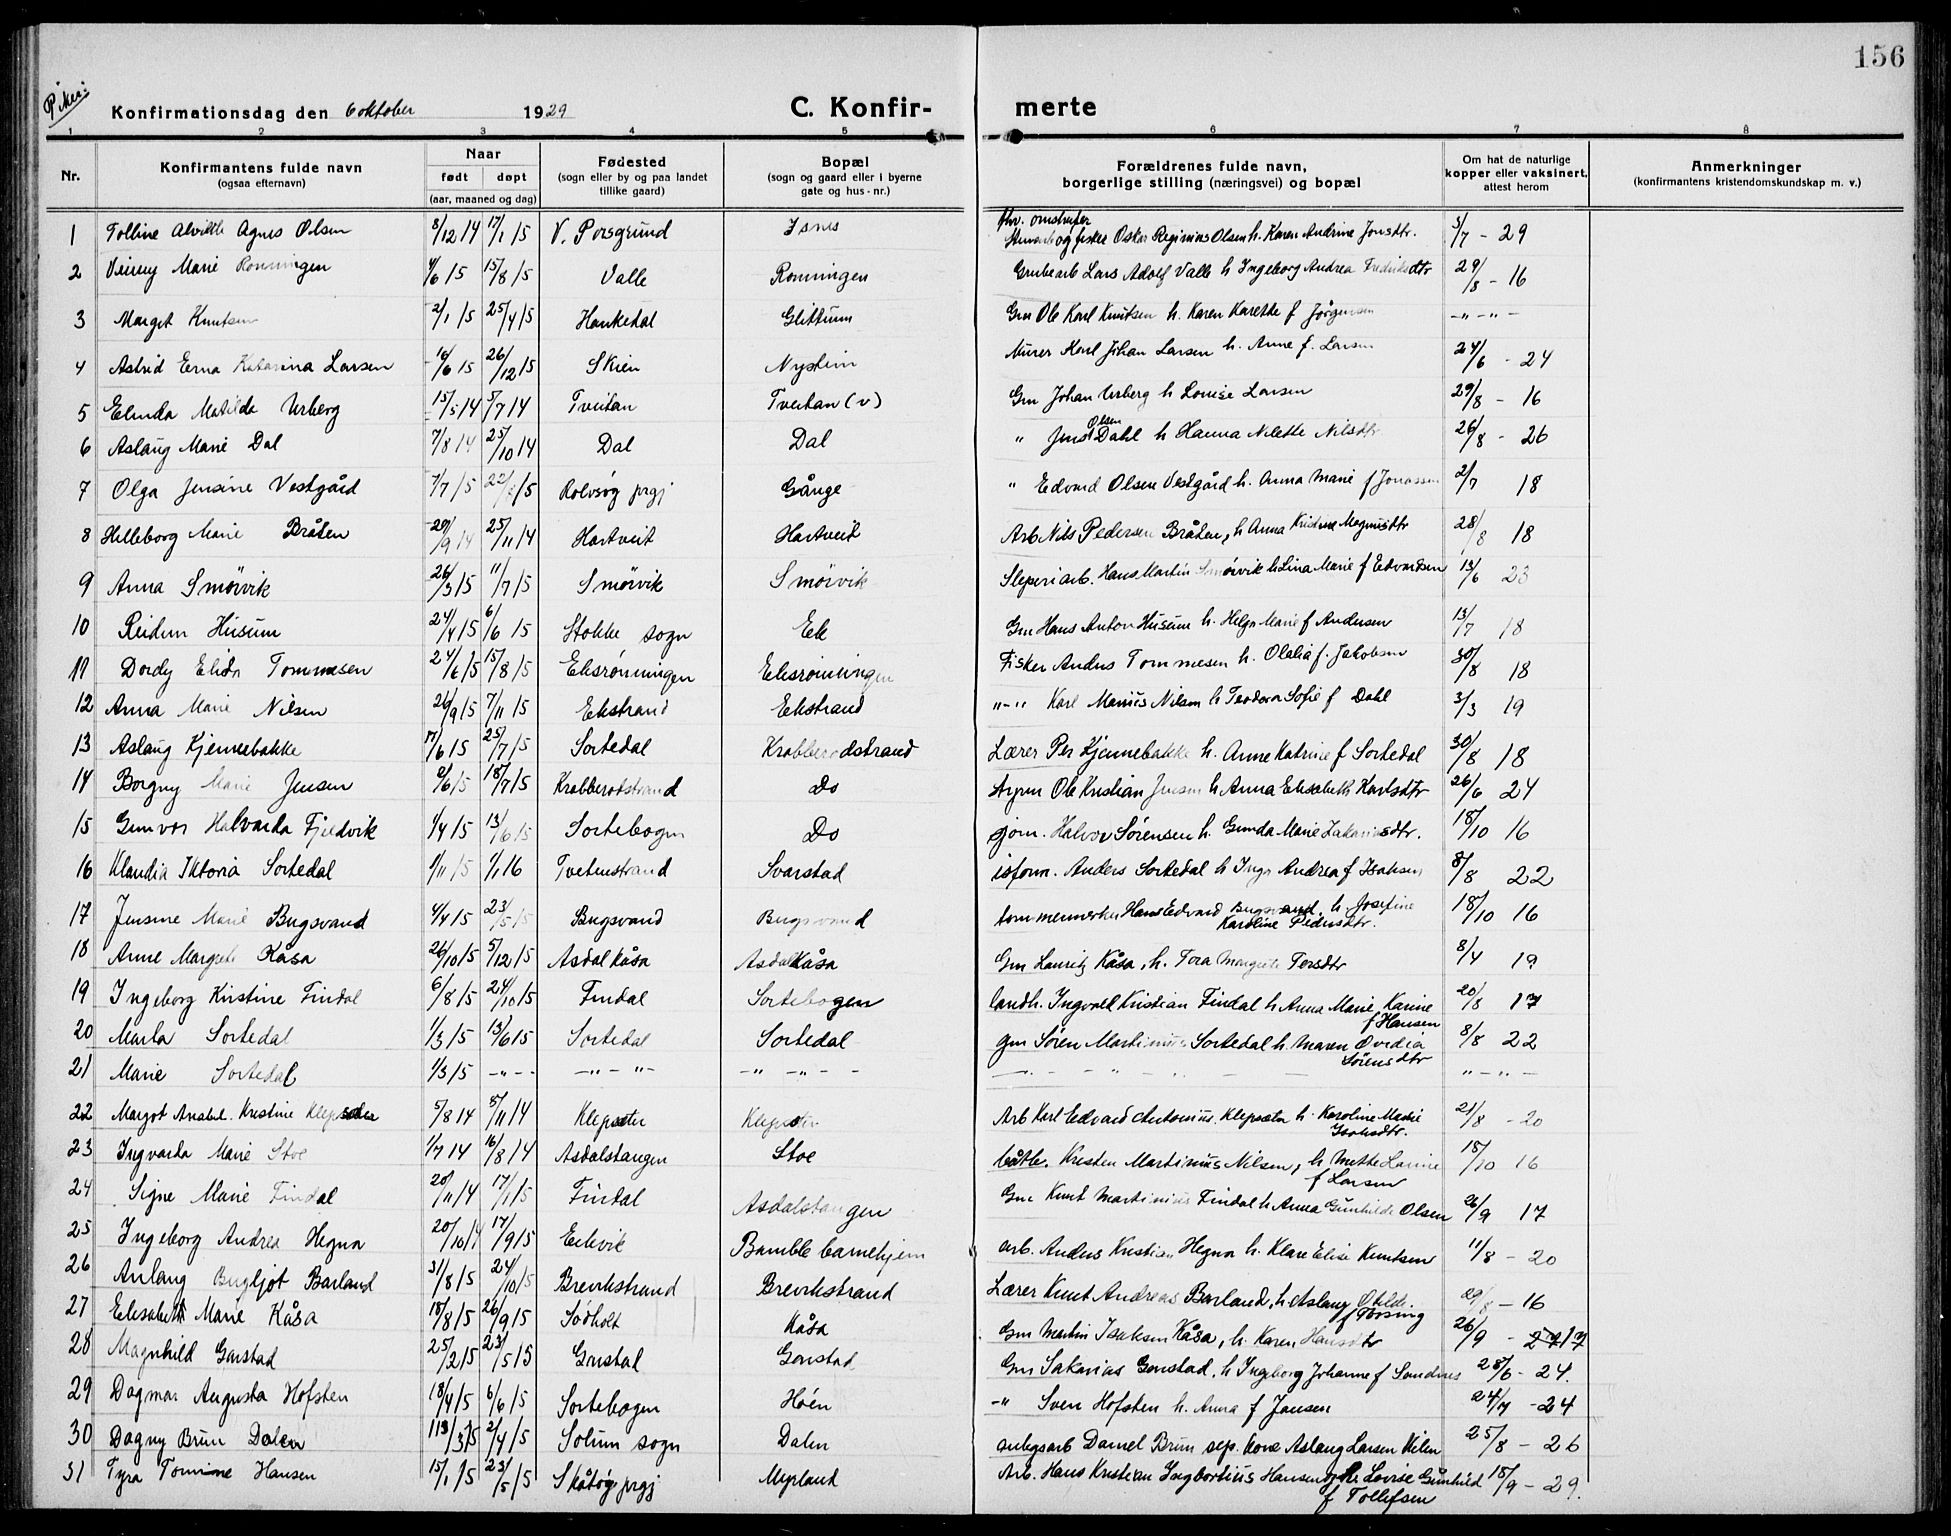 156
Piker:
Konfirmationsdag den 6 oktober 1929
C. Konfir- merte
1 2 3 4 5 6 7 8
Nr. Konfirmantens fulde navn (ogsaa efternavn) Naar født døpt (aar, maaned og dag) Fødested (sogn eller by og paa landet tillike gaard) Bopæl (sogn og gaard eller i byerne gate og hus-nr.) Forældrenes fulde navn, borgerlige stilling (næringsvei) og bopæl Om hat de naturlige kopper eller vaksinert, attest herom Anmerkninger (konfirmantens kristendomskundskap m. v.)
1 Tolline Alvilde Agnes Olsen 8/12 14 17/1 15 V. Porsgrund og fisker Oskar Reginius Olsen h. Karen Andrine Jonsdtr. 5/7 - 29
2 Marie Rønningen 4/6 15 15/8 15 Valle Rønningen Grubearb Lars Adolf Valle h Ingeborg Andrea Fredriksdtr 29/8 - 16
3 Margit Knutsen 2/1 15 25/4 15 Haukedal Glittum Gm Ole Karl Knutsen h. Karen Karette f Jörgensen -"-"-
4 Astrid Erna Katarina Larsen 16/6 15 26/12 15 Skien Nystein Murer Karl Johan Larsen h. Anne f. Larsen 24/6 - 24
5 Elinda Matilda Urberg 15/5 14 5/7 14 Tveitan Tveitan (v) Gm Johan Urberg h Lovise Larsen 29/8 - 16
6 Aslaug Marie Dal 7/8 14 25/10 14 Dal Dal " Jens Olsen Dahl h Hanna Nilette Nilsdtr 26/8 - 26
7 Olga Jensine Vestgård 7/7 15 22/8 15 Rolvsøy prgj Gånge " Edvard Olsen Vestgård h. Anna Marie f Jonassen 2/7 18
8 Helleborg Marie Bråten 29/9 14 25/11 14 Hartveit Hartveit Arb. Nils Pedersen Bråten, h Anna Kristine Magnusdtr 28/8 18
9 Anna Smörvik 26/3 15 11/7 15 Smörvik Smörvik Sleperiarb. Hans Martin Smörvik h Lina Marie f Edvardsen 13/6 23
10 Reidun Husum 24/4 15 6/6 15 Stokke sogn Ek Gm Hans Anton Husum h. Helga Marie f Andersen 13/7 18
11 Dordy Elida Tommesen 24/6 15 15/8 15 Eksrønningen Eksrønningen Fisker Anders Tommesen h. Olalia f. Jakobsen 30/8 18
12 Anna Marie Nilsen 26/9 15 7/11 15 Ekstrand Ekstrand "-" Karl Marius Nilsen h Teodora Sofie f Dahl 3/3 19
13 Aslaug Kjennebakke 17/6 15 25/7 15 Sortedal Krabberodstrand Lærer Per Kjennebakke h. Anne Katrine f Sortedal 30/8 18
14 Borgny Marie Jensen 2/6 15 18/7 15 Krabberodstrand Do Ole Kristian Jensen h Anna Elisabeth Karlsdtr 26/6 24
15 Gunvor Halvarda Fjeldvik 1/4 15 13/6 15 Sortebogen Do sjöm. Halvor Sörensen h. Gunda Marie Zakariasdtr. 18/10 16
16 Klaudia Iktoria Sortedal 1/11 15 1/1 16 Tvetenstrand Svarstad isform. Anders Sortedal h Inga Andrea f Isaksen 8/8 22
17 Jensine Marie Bugsvand 4/4 15 23/5 15 Bugsvand Bugsvand tömmermerker Hans Edvard Bugsvand h. Josefine Karoline Pedersdtr. 18/10 16
18 Anne Margrete Kåsa 26/10 15 5/12 15 Asdalkåsa Asdalkåsa Gm Lauritz Kåsa, h. Tora Margrete Torsdtr 8/4 19
19 Ingeborg Kirstine Findal 6/8 15 24/10 15 Findal Sortebogen landh. Ingvald Kristian Findal h Anna Marie Karine f Hansen 20/8 17
20 Marta Sortedal 1/3 15 13/6 15 Sortedal Sortedal gm Søren Martinius Sortedal h. Maren Ovidia Sörensdtr 8/8 22
21 Marie Sortedal 1/3 15 -"-- -"-"- -"-"-- -"-"-"- "-"-
22 Margot Anabel. Kristine Klepsater 5/8 14 8/11 14 Klepsater Klepsater Arb Karl Edvard Antonius Klepsater h. Karoline Marie Isaksdtr. 21/8 - 20
23 Ingvarda Marie Stoe 1/7 14 16/8 14 Asdalstangen Stoe båtb. Kristen Martinius Nilsen, h Mette Lovise f Larsen 18/10 16
24 Signe Marie Findal 20/11 14 17/1 15 Findal Asdalstangen Gm Knut Martinius Findal h Anna Gunhilde Olsen 26/9 17
25 Ingeborg Andrea Hegna 20/10 14 17/9 15 Eekvik Bamble barnehjem arb. Anders Kristian Hegna h. Klara Elise Knutsen 11/8 - 20
26 Aslaug Bergljot Barland 31/8 15 24/10 15 Brevikstrand Brevikstrand Lærer Knut Andreas Barland, h Aslaug Otilde f Torsing 29/8 - 16
27 Elisabeth Marie Kåsa 18/8 15 26/9 15 Søvholt Kåsa Gm Martin Isaksen Kåsa, h. Karen Hansdtr 26/9 - 17
28 Magnhild Gonstad 25/2 15 23/5 15 Gonstad Gonstad Gm Sakarias Gonstad, h Ingeborg Johanne f Sandnes 28/6 - 24.
29 Dagmar Augusta Hofsten 18/4 15 6/6 15 Sortebogen Höen -" Sven Hofsten h. Anna f Jansen 24/4 - 24
30 Dagny Brun Dalen 113/3 15 2/4 15 Solum sogn Dalen anlegsarb Daniel Brun sep. kone Aslaug Larsen Kilen 25/8 - 26
31 Tyra Tomine Hansen 15/1 15 23/5 15 Skåtøy prgj Myrland Arb. Hans Kristian Ingbortius Hansen og h. Lovise Gunhild f Tollefsen 18/9 - 29.